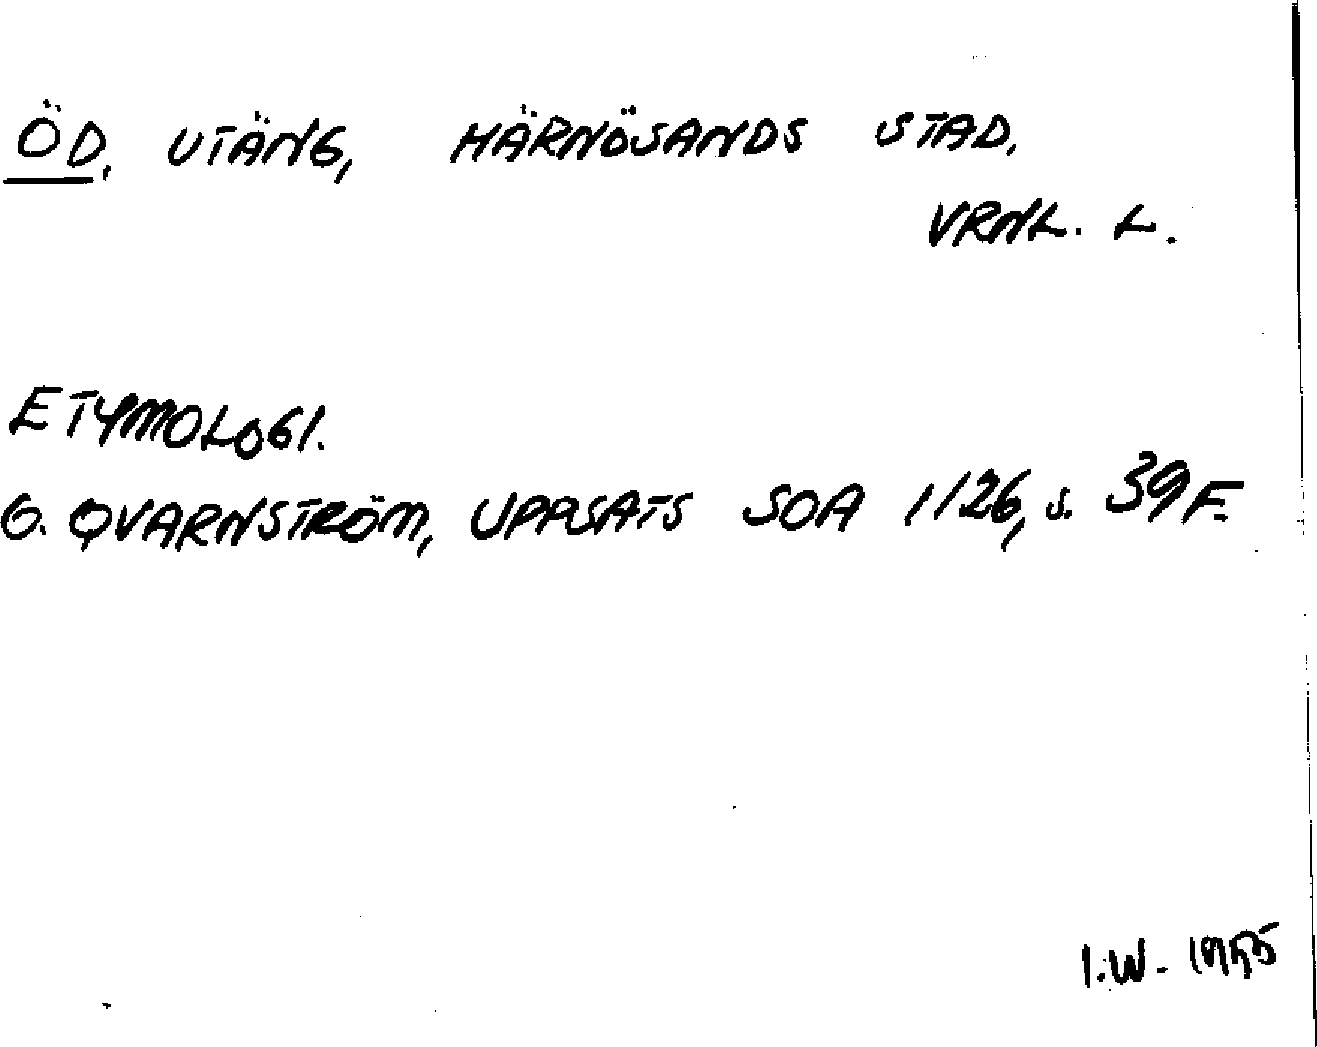 ÖD, UTÄNG, HÄRNÖSANDS STAD,
VRNL. L.
ETYMOLOGI.
G. QVARNSTRÖM, UPPSATS SOA 1126, s. 39 F.
I.W. 1955